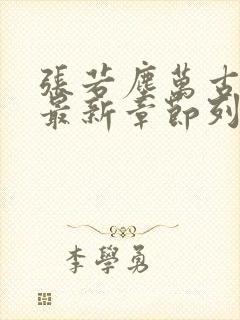 張若塵萬古
最新章節列
李學勇